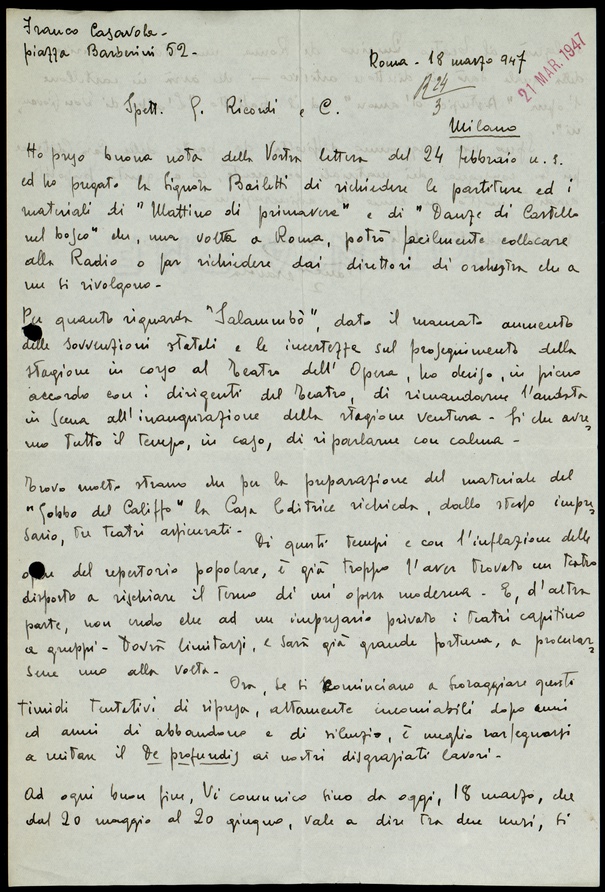 Franco Casavola -
piazza Barberini 52 -
Roma - 18 marzo 947
21 MAR. 1947
R 24/3
Spett. G. Ricordi e C.
Milano
Ho preso buona nota della Vostra lettera del 24 febbraio u. s.
ed ho pregato la Signora Bailetti di richiedere le partiture ed i
materiali di "Mattino di primavera" e di "Danze di Castello
nel bosco" che, una volta a Roma, potrò facilmente collocare
alla Radio o far richiedere dai direttori di orchestra che a
me si rivolgono -
Per quanto riguarda "Salammbô", dato il mancato aumento
delle sovvenzioni statali e le incertezze sul proseguimento della
stagione in corso al Teatro dell'Opera, ho deciso, in pieno
accordo con i dirigenti del Teatro, di rimandarne l'andata
in scena all'inaugurazione della stagione ventura - Si che avre=
mo tutto il tempo, in caso, di riparlarne con calma -
Trovo molto strano che per la preparazione del materiale del
"Gobbo del Califfo" la Casa Editrice richieda, dallo stesso impre=
sario, tre teatri assicurati - Di questi tempi e con l'inflazione delle
opere del repertorio popolare, è già troppo l'aver trovato un teatro
disposto a rischiare il terno di un'opera moderna - E, d'altra
parte, non credo che ad un impresario privato i teatri capitino
a gruppi - Dovrà limitarsi, e sarà già grande fortuna, a procurar=
sene uno alla volta -
Ora, se si cominciano a scoraggiare questi
timidi tentativi di ripresa, altamente encomiabili dopo anni
ed anni di abbandono e di silenzio, è meglio rassegnarsi
a recitare il De profundis ai nostri disgraziati lavori -
Ad ogni buon fine, Vi comunico sino da oggi, 18 marzo, che
dal 20 maggio al 20 giugno, vale a dire tra due mesi, si